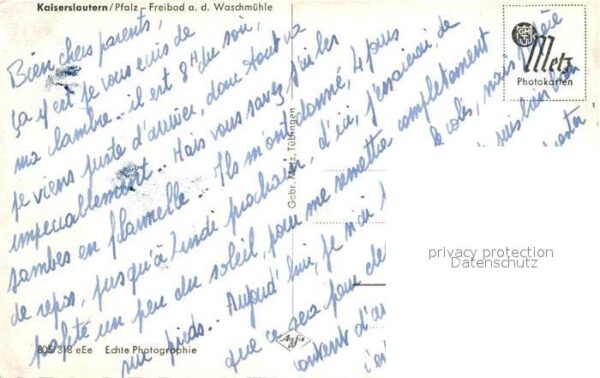 Kaiserslautern/Pfalz - Freibad a. d. Waschmühle
Bien chers parents,
Ça y est je vous écris de
ma chambre.. il est 8H du soir,
je viens juste d'arriver, donc tout va
impeccablement.. Mais vous savez j'ai les
jambes en flannelle.. Ils m'ont donné, 4 jours
de repos, jusqu'à Lundi prochain, d'ici, j'essaierai, de
profité un peu du soleil, pour me remettre complètement
sur pieds.. Aujourd'hui, je n'ai
que ce sera pour de
content d'a
colis, mais
suis bien
Metz
Photokarten
Gebr. Metz, Tübingen
privacy protection
Datenschutz
805/318 eEe Echte Photographie
Agfa
1